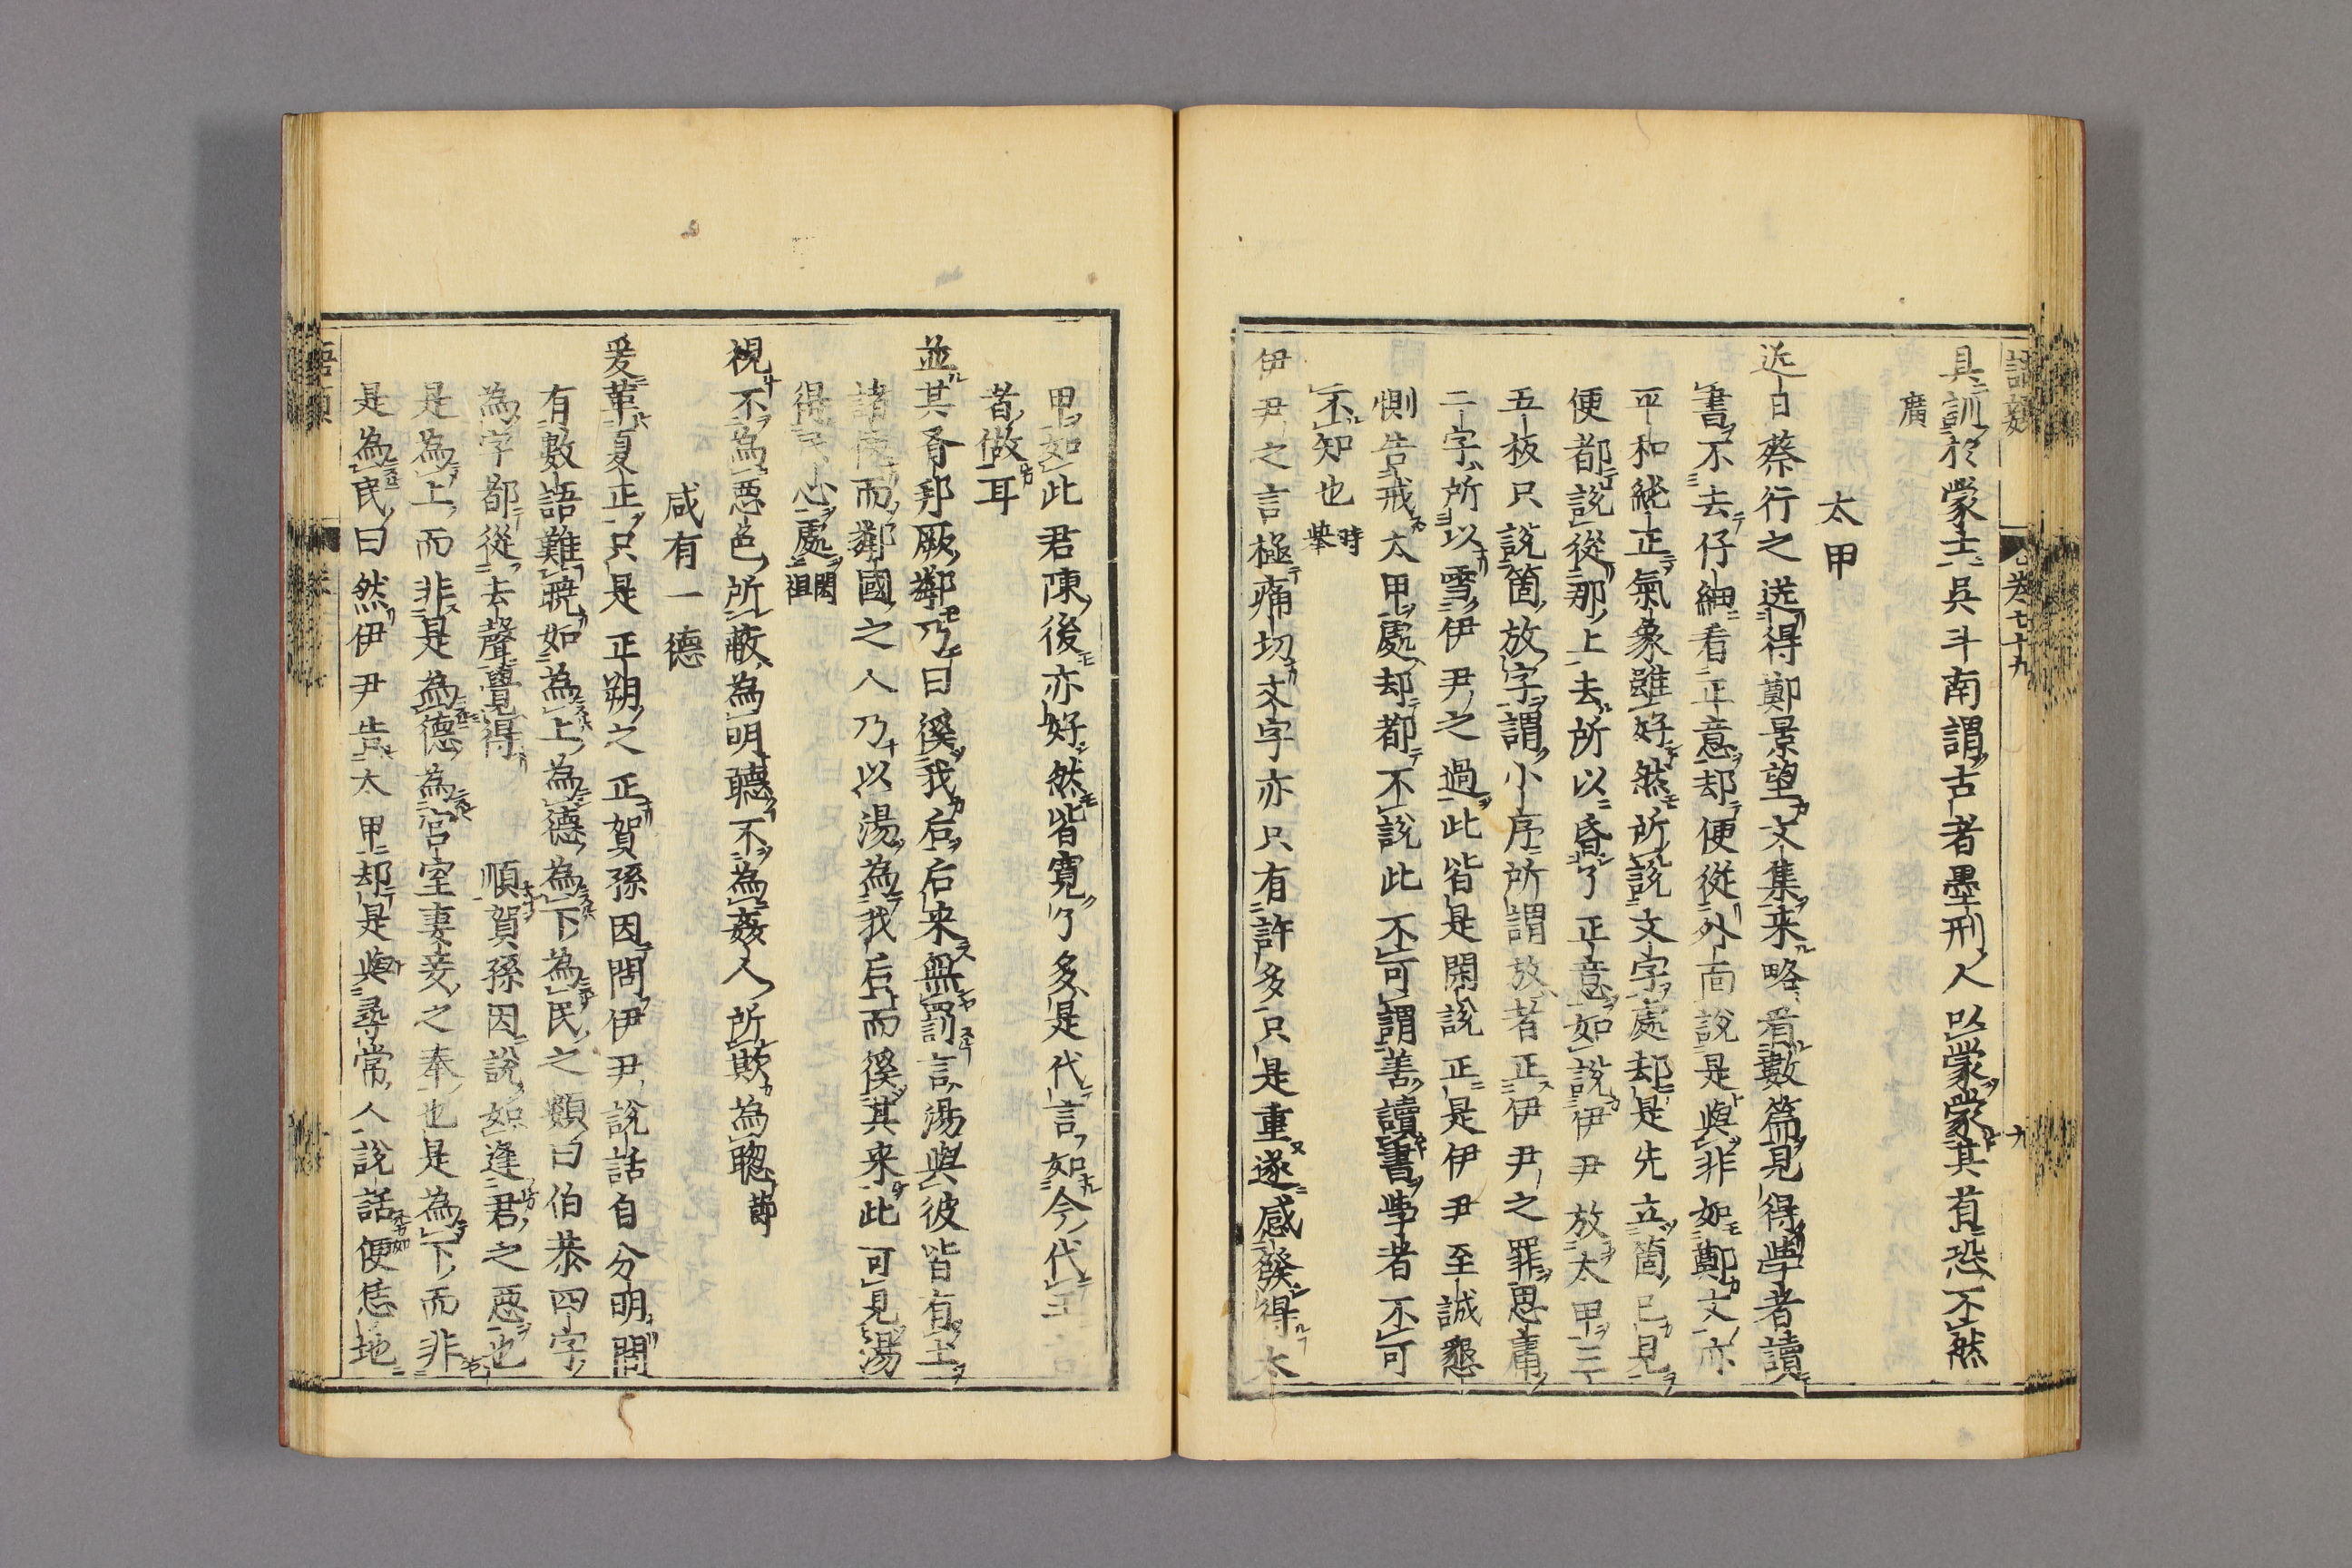 語類 卷七十九 九
具訓於蒙士呉斗南謂古者墨刑人以蒙蒙其首恐不然
廣
太甲
近日蔡行之送得鄭景望文集来略看數篇見得學者讀
書不去仔細看正意却便従外面說是與非如鄭文亦
平和純正氣象雖好然所說文字處却是先立箇已見
便都說従那上去所以昏了正意如說伊尹放太甲三
五板只說箇放字謂小序所謂放者正伊尹之罪思庸
二字所以雪伊尹之過此皆是閑說正是伊尹至誠懇
惻告戒太甲處却都不說此不可謂善讀書學者不可
不知也時擧
伊尹之言極痛切文字亦只有許多只是重遂感發得太
甲如此君陳後亦好然皆寛了多是代言如今代王言
者做耳
並其有邦厥鄰乃曰徯我后后来無罰言湯與彼皆有土
諸侯而鄰國之人乃以湯為我后而徯其来此可見湯
得民心處閎祖
視不為惡色所蔽為明聽不為姦人所欺為聰節
咸有一德
爰革夏正只是正朔之正賀孫因問伊尹說話自分明問
有數語難曉如為上為德為下為民之類曰伯恭四字
為字都従去聲覺得順賀孫因說如逢君之惡也
是為上而非是為德為宮室妻妾之奉也是為下而非
是為民曰然伊尹告太甲却是與尋常人說話便恁地
語類